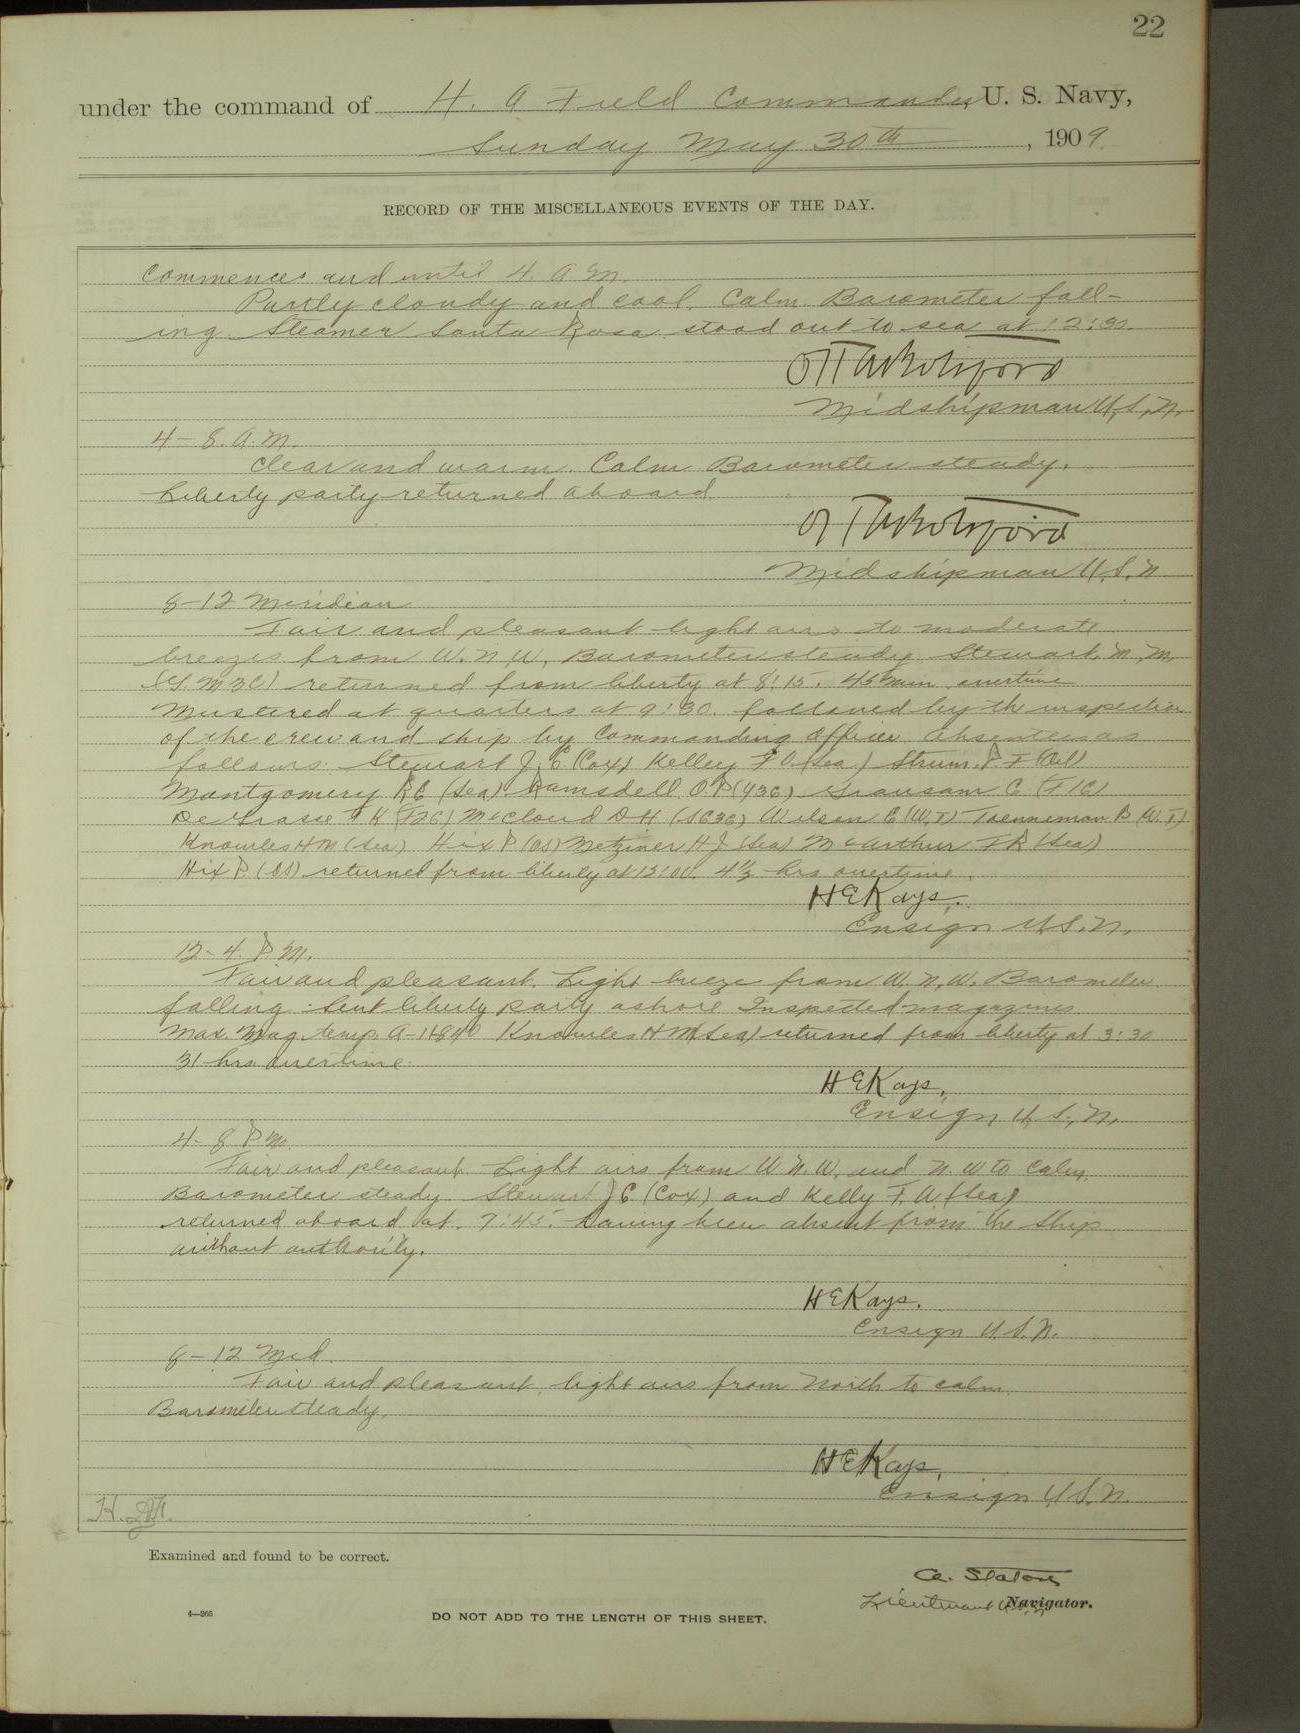 22
under the command of H. A Field Commander U. S. Navy,
Sunday May 30th, 1909
RECORD OF THE MISCELLANEOUS EVENTS OF THE DAY.
Commences and until 4. A. M.
Partly cloudy and cool. Calm. Barometer fall-
ing. Steamer Santa Rosa stood out to sea at 12:30.
Midshipman U.S.N.
4-8. A. M.
Clear and warm. Calm. Barometer steady.
Liberty party returned aboard
Midshipman U.S.N
8-12 Meridian
Fair and pleasant light airs to moderate
breezes from W.N.W. Barometer steady. Stewart, M. M.
(G. M 3C) returned from liberty at 8:15. 45 min overtime
Mustered at quarters at 9:30. followed by th inspection
of the crew and ship by Commanding Officer Absentees as
follows: Stewart J. C. (Cox) Kelley F O. (Sea) Strum. P F (Oil)
Montgomery R E (Sea). Ramsdell O P (Y3C) Gransam C (F1C)
De Grasse H (F2C) McCloud D H (SC3C) Wilson C (W.T) Toenneman B (W.T)
Knowles H M (Sea) Hix P (OS) Metziner H J (Sea) McArthur F R (Sea)
Hix P. (OS) returned from liberty at 12:00. 4½ hrs overtime.
H E Kays.
Ensign U.S.N.
12-4. P M.
Fair and pleasant. Light breeze from W. N. W. Barometer
falling. Sent liberty party ashore Inspected magazines.
Max. Mag. temp. A-114 84° Knowles H M (Sea) returned from liberty at 3:30
31 hrs overtime.
H E Kays.
Ensign U. S., N.
4-8 P M.
Fair and pleasant. Light airs from W N. W. and N. W to Calm.
Barometer steady. Stewart J C. (Cox) and Kelly F. A (Sea)
returned aboard at 7:45. having been absent from the Ship
without authority.
H E Kays.
Ensign U.S.N.
8-12 Mid.
Fair and pleasant, light airs from North to calm.
Barometer steady.
H E Kays.
Ensign U.S.N.
Examined and found to be correct.
A. Staton
Lieutenant U.S.N. Navigator.
4—265
DO NOT ADD TO THE LENGTH OF THIS SHEET.